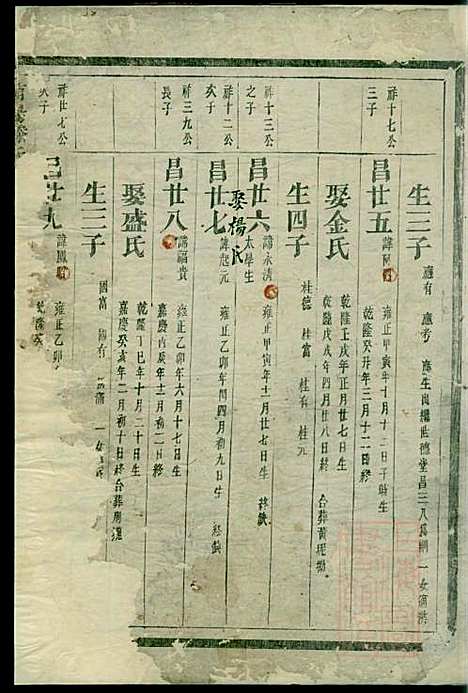 生三子 應有 應考 應生
祥十七公三子
昌廿五 雍正甲寅年十月十二日子時生
乾隆癸丑年三月十二日終
娶金氏 乾隆壬戌年正月廿七日生
嘉慶戊戌年四月廿八日終
生四子 桂德 桂富 桂科 桂元
祥十三公之子
昌廿六 諱永清 太學生 雍正甲寅年十一月廿七日生 終缺
娶楊氏
祥十二公次子
昌廿七 諱起元 雍正乙卯年閏四月初九日生 終缺
祥三九公長子
昌廿八 諱福貴 雍正乙卯年六月十七日生
嘉慶丙辰年十二月初二日終
娶盛氏 乾隆丁巳年十月二十日生
嘉慶癸亥年二月初十日終
生三子 國富 國有
祥廿七公次子
昌廿九 諱鳳 雍正乙卯